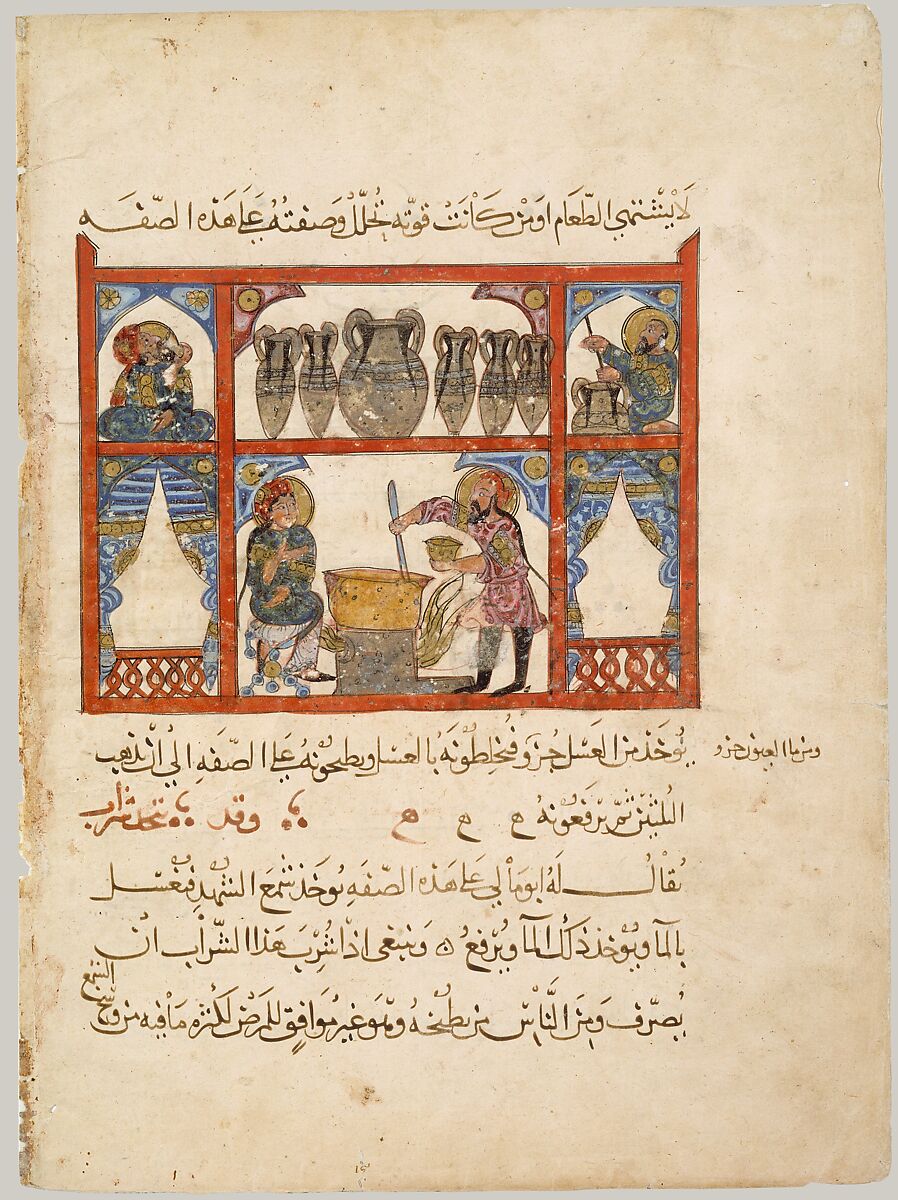 لَا يَشْتَهِي الطَّعَام اومَن كَانَتْ قوّته تُحَلَّلُ وَصفتُهُ عَلَى هَذه الصّفَه
يُوخَذ من العَسَل جُزؤ فيُخلِطُونَهُ بالعَسَل ويَطبخُونهُ عَلَى الصّفَهِ الي انْ يَذهب
ومن ماالعيون جزو
الثلثين ثمّ يَرفَعُونهُ ه ه ه وقد يتخذ شراب
يُقَالُ لَهُ ابومَالي عَلى هَذه الصّفَهِ يُوخَذ شمَع الشهدِ فيغسَل
بالمآ ويُوخذ ذلكَ المآ ويُرْفَعُ ٥ وَينبَغى اذا شُرِبَ هَذا الشّرَاب انْ
يُصرَّف وَمنَ النَّاسِ من يطبُخهُ وَهوَ غير مُوَافِق للمرَضى لكثرَه مَا فيه من وسَخ
الشمَع